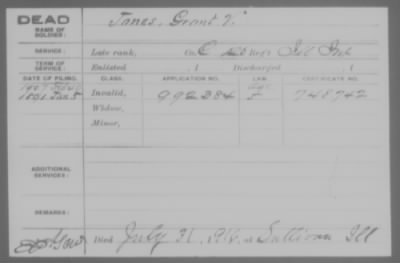 DEAD
NAME OF SOLDIER: Janes, Grant V.
SERVICE: Late rank, Co. C Reg't Ill Inf
TERM OF SERVICE: Enlisted , 1 Discharged , 1
DATE OF FILING. CLASS. APPLICATION NO. LAW. CERTIFICATE NO.
1907
1891 Jan 5 Invalid, 992284 748742
Widow,
Minor,
ADDITIONAL SERVICES:
REMARKS:
Died July 31, at Sullivan Ill